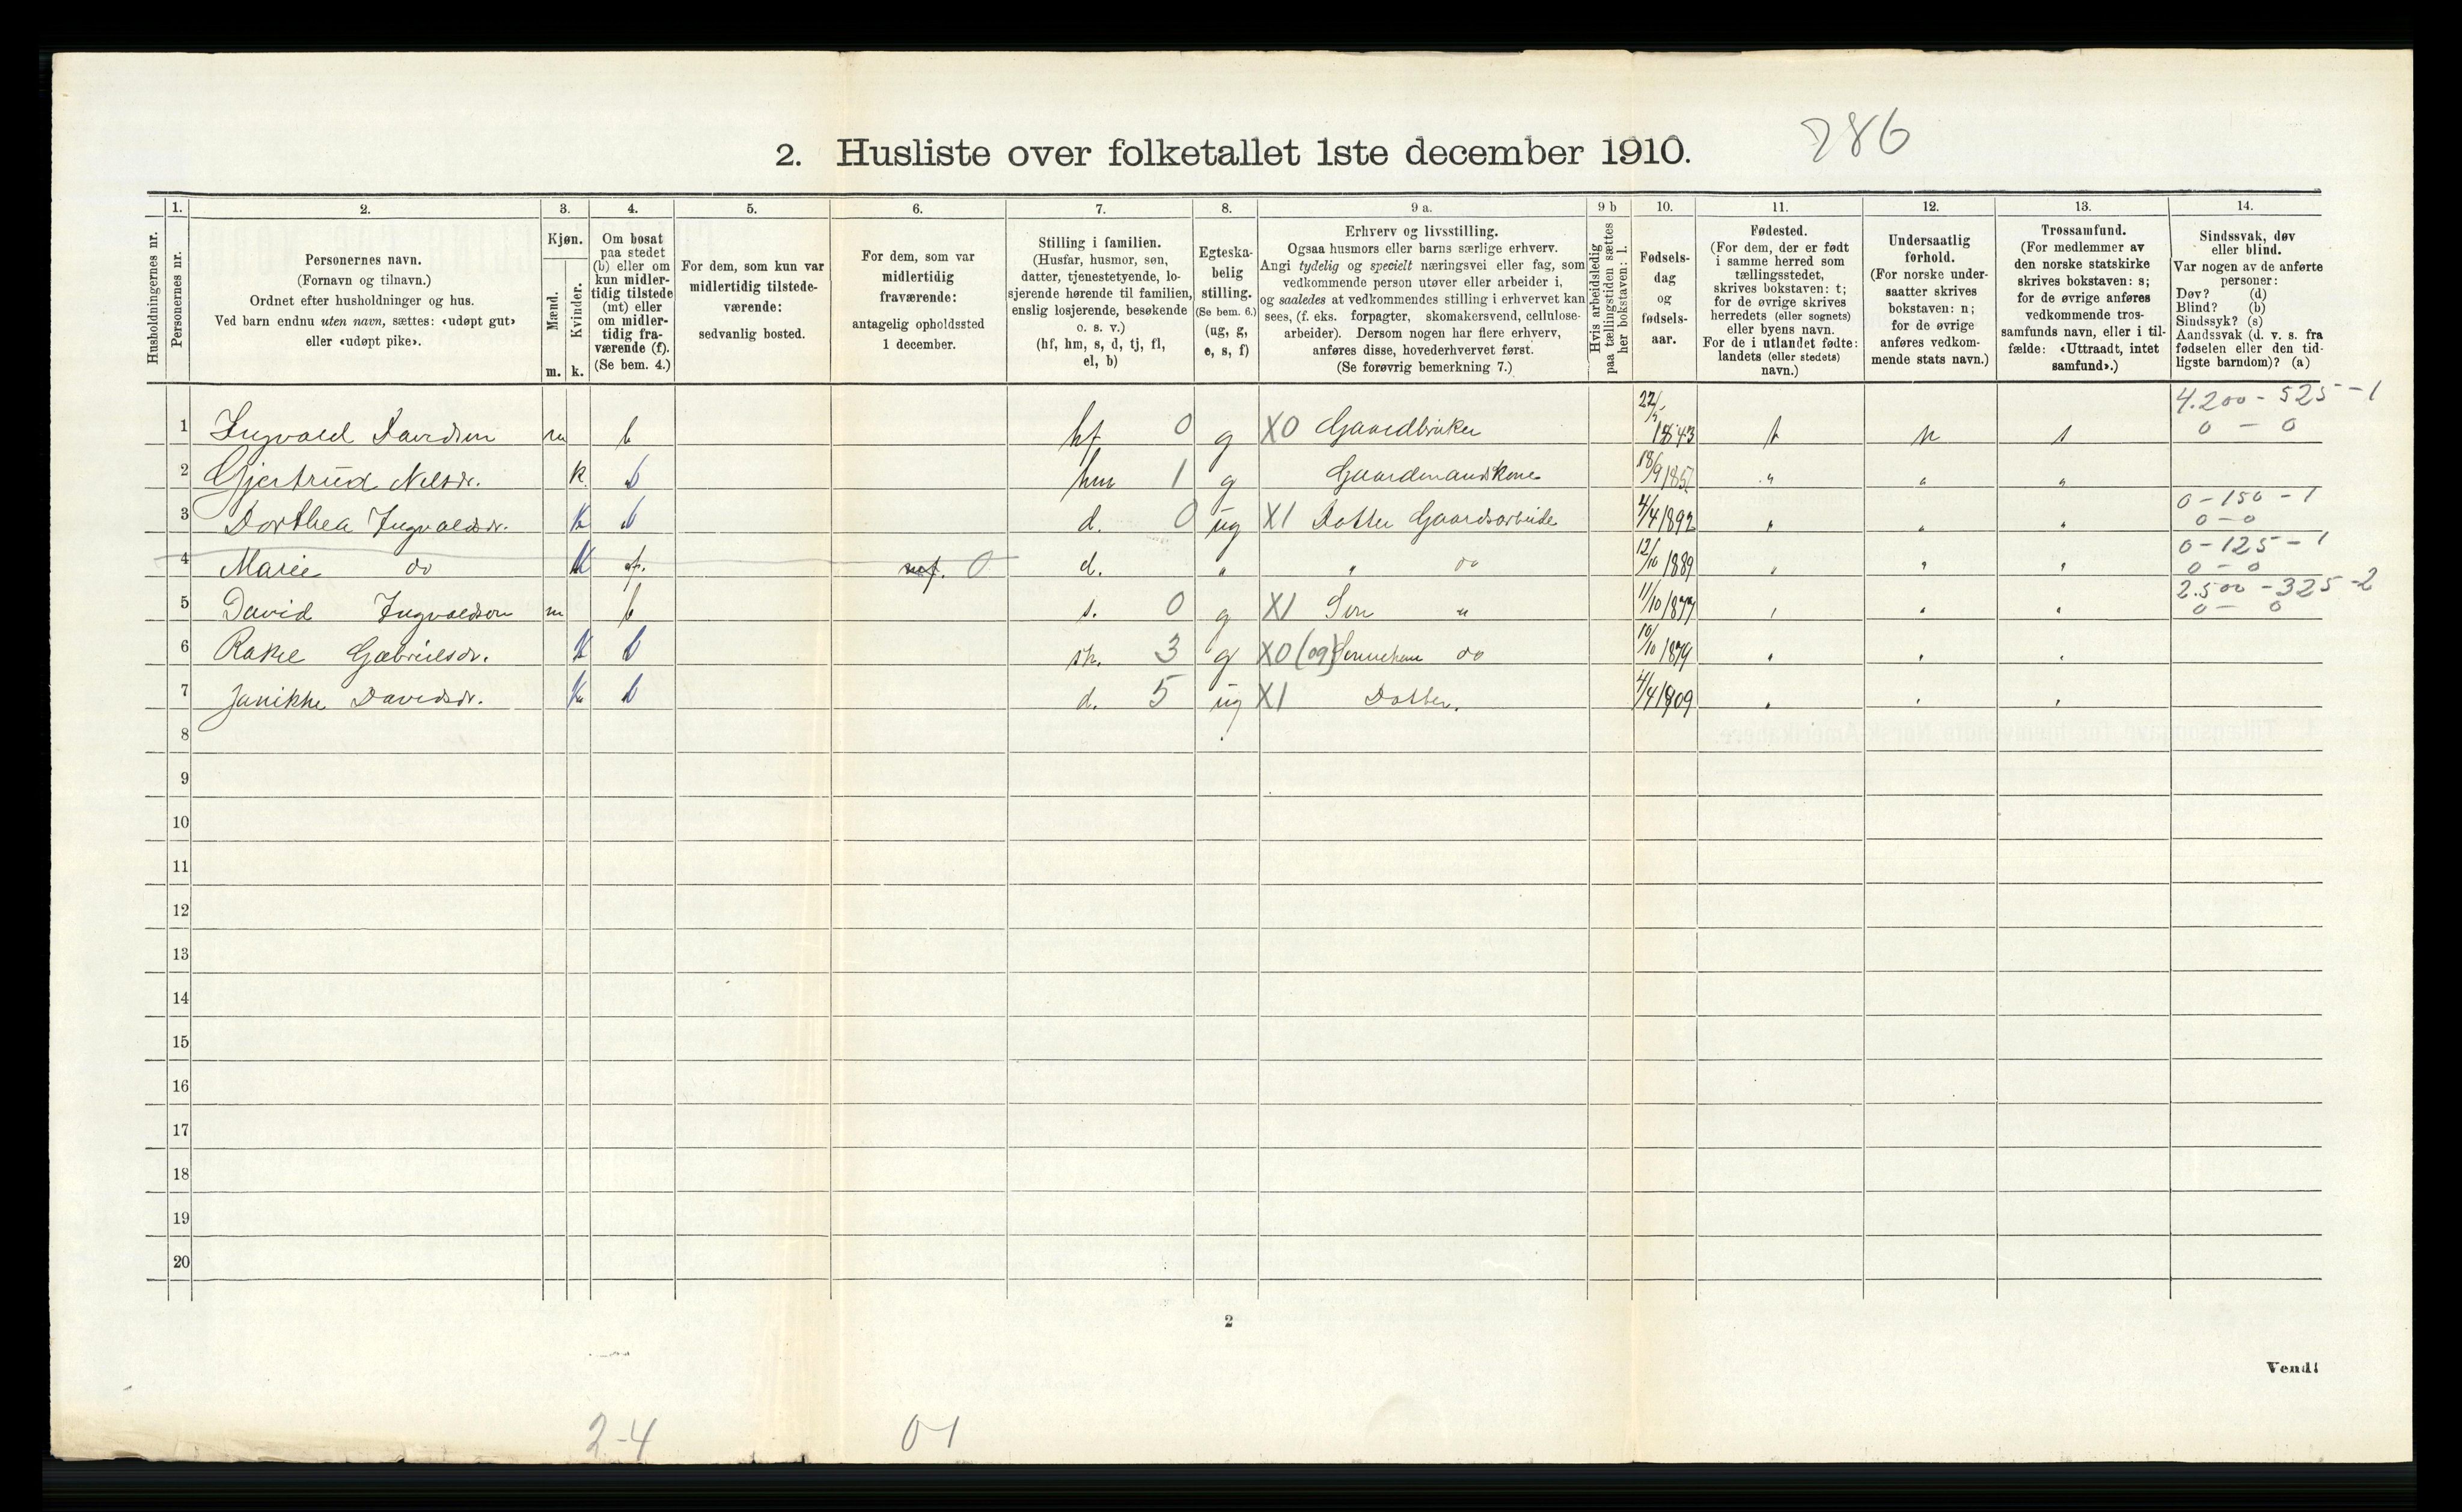 2. Husliste over folketallet 1ste december 1910.
286
1. 2. 3. 4. 5. 6. 7. 8. 9 a. 9 b 10. 11. 12. 13. 14.
Husholdningernes nr.
Personernes nr.
Personernes navn.
(Fornavn og tilnavn.)
Ordnet efter husholdninger og hus.
Ved barn endnu uten navn, sættes: «udøpt gut»
eller «udøpt pike».
Kjøn.
Mænd.
Kvinder.
m. k.
Om bosat
paa stedet
(b) eller om
kun midler-
tidig tilstede
(mt) eller
om midler-
tidig fra-
værende (f).
(Se bem. 4.)
For dem, som kun var
midlertidig tilstede-
værende:
sedvanlig bosted.
For dem, som var
midlertidig
fraværende:
antagelig opholdssted
1 december.
Stilling i familien.
(Husfar, husmor, søn,
datter, tjenestetyende, lo-
sjerende hørende til familien,
enslig losjerende, besøkende
o. s. v.)
(hf, hm, s, d, tj, fl,
el, b)
Egteska-
belig
stilling.
(Se bem. 6.)
(ug, g,
e, s, f)
Erhverv og livsstilling.
Ogsaa husmors eller barns særlige erhverv.
Angi tydelig og specielt næringsvei eller fag, som
vedkommende person utøver eller arbeider i,
og saaledes at vedkommendes stilling i erhvervet kan
sees, (f. eks. forpagter, skomakersvend, cellulose-
arbeider). Dersom nogen har flere erhverv,
anføres disse, hovederhvervet først.
(Se forøvrig bemerkning 7.)
Hvis arbeidsledig
paa tællingstiden sættes
her bokstaven: l.
Fødsels-
dag
og
fødsels-
aar.
Fødested.
(For dem, der er født
i samme herred som
tællingsstedet,
skrives bokstaven: t;
for de øvrige skrives
herredets (eller sognets)
eller byens navn.
For de i utlandet fødte:
landets (eller stedets)
navn.)
Undersaatlig
forhold.
(For norske under-
saatter skrives
bokstaven: n;
for de øvrige
anføres vedkom-
mende stats navn.)
Trossamfund.
(For medlemmer av
den norske statskirke
skrives bokstaven: s;
for de øvrige anføres
vedkommende tros-
samfunds navn, eller i til-
fælde: «Uttraadt, intet
samfund».)
Sindssvak, døv
eller blind.
Var nogen av de anførte
personer:
Døv? (d)
Blind? (b)
Sindssyk? (s)
Aandssvak (d. v. s. fra
fødselen eller den tid-
ligste barndom)? (a)
4.200 - 525 - 1
1 Ingvald Davidsen m b hf 0 g X0 Gaardbruker 22/5 1843 t n s 0 - 0
2 Gjertrud Nelsdr. k b hm 1 g Gaardmandskone 18/9 185 " " "
0 - 150 - 1
3 Dorthea Ingvaldsdr. k b d. 0 ug X1 Datter Gaardsarbeide 4/4 1892 " " " 0 - 0
0 - 125 - 1
4 Marie do k f. 0 d. " " do 12/10 1889 " " " 0 - 0
2.500 - 325 - 2
5 David Ingvaldson m b s. 0 g X1 Søn " 11/10 1877 " " " 0 - 0
6 Rakel Gabrielsdr. k b sk. 3 g X0 (og) do 10/10 1879 " " "
7 Janikke Davidsdr. k b d. 5 ug X1 Datter. 4/4 1909 " " "
8
9
10
11
12
13
14
15
16
17
18
19
20
2
Vend!
2-4 0-1